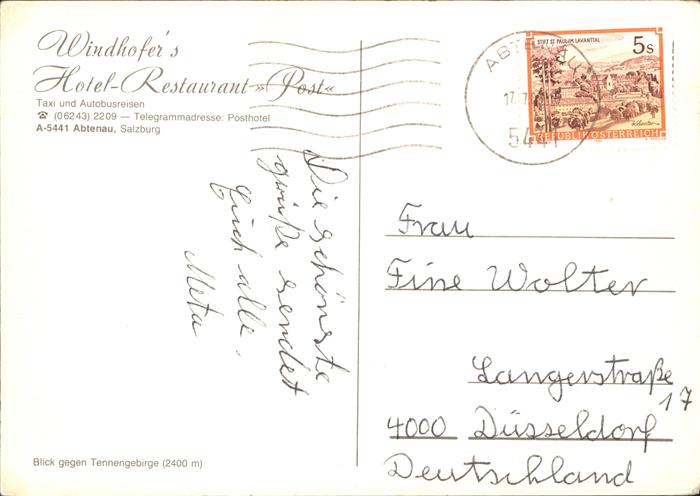 Windhofer's
Hotel-Restaurant »Post«
Taxi und Autobusreisen
☎ (06243) 2209 — Telegrammadresse: Posthotel
A-5441 Abtenau, Salzburg
Die schönste
grüße sendet
Euch alle.
Meta
Blick gegen Tennengebirge (2400 m)
STIFT ST. PAUL IM LAVANTTAL
5 s
REPUBLIK ÖSTERREICH
ABTENAU
5441
Frau
Fine Wolter
Langerstraße
17
4000 Düsseldorf
Deutschland